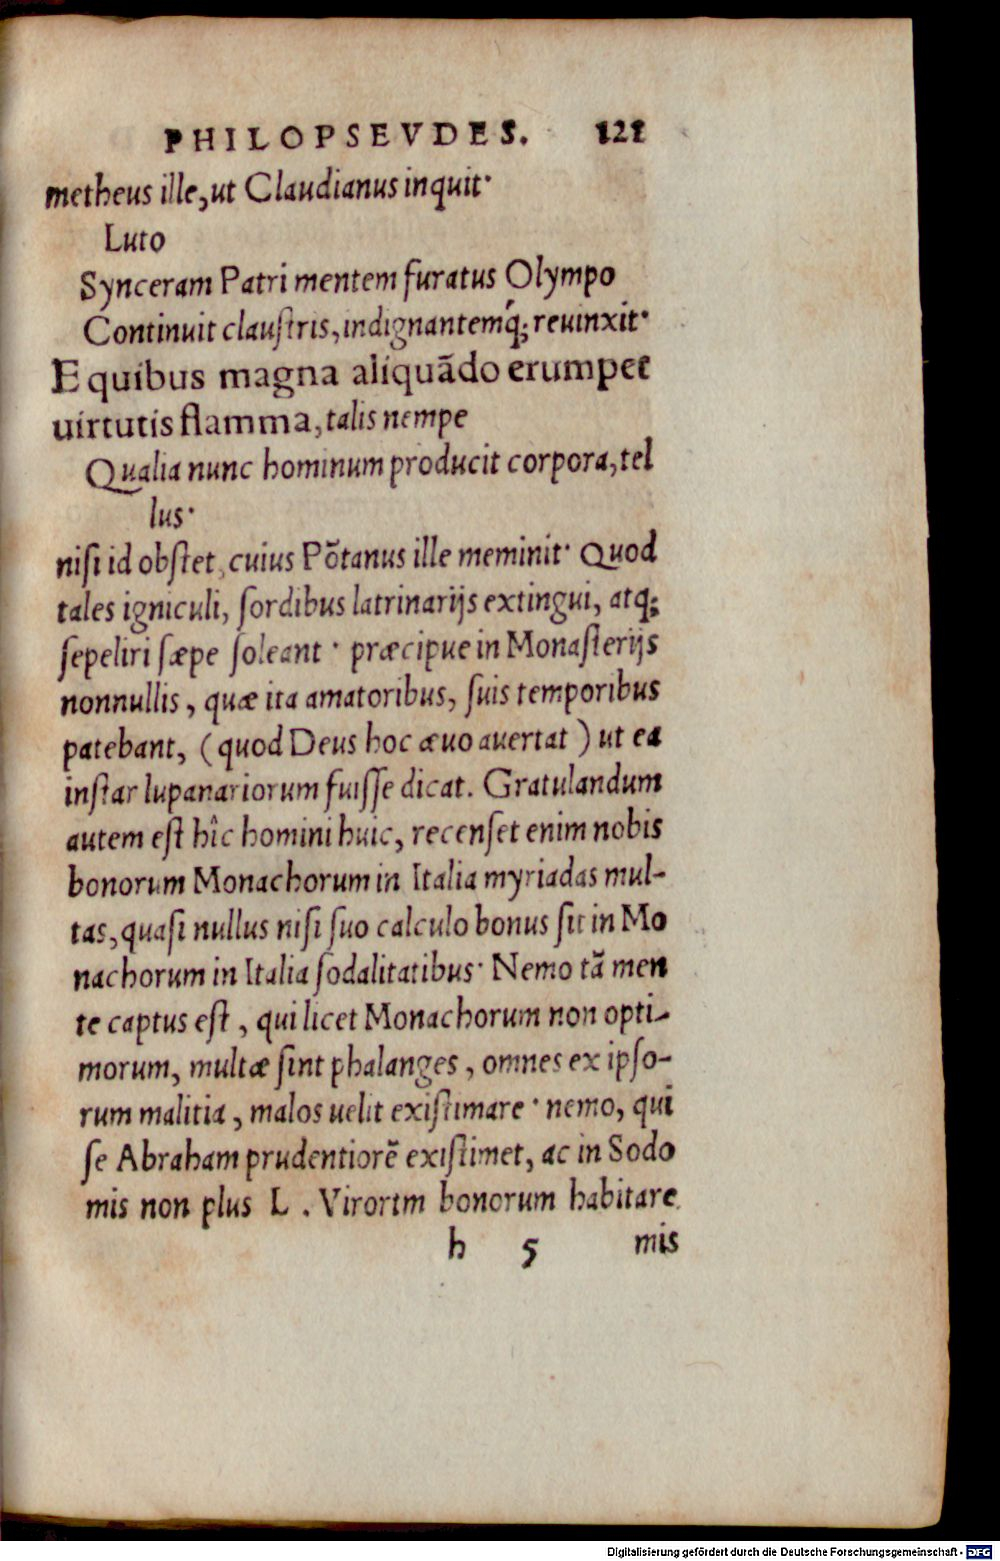 PHILOPSEVDES. 121
metheus ille, ut Claudianus inquit·
Luto
Synceram Patri mentem furatus Olympo
Continuit clauſtris, indignantemq́; reuinxit·
E quibus magna aliquãdo erumpet
uirtutis flamma, talis nempe
Qualia nunc hominum producit corpora, tel
lus·
niſi id obſtet, cuius Põtanus ille meminit· Quod
tales igniculi, ſordibus latrinarijs extingui, atq;
ſepeliri ſæpe ſoleant · præcipue in Monaſterijs
nonnullis, quæ ita amatoribus, ſuis temporibus
patebant, (quod Deus hoc æuo auertat) ut ea
inſtar lupanariorum fuiſſe dicat. Gratulandum
autem eſt hîc homini huic, recenſet enim nobis
bonorum Monachorum in Italia myriadas mul-
tas, quaſi nullus niſi ſuo calculo bonus ſit in Mo
nachorum in Italia ſodalitatibus· Nemo tã men
te captus eſt, qui licet Monachorum non opti-
morum, multæ ſint phalanges, omnes ex ipſo-
rum malitia, malos uelit exiſtimare · nemo, qui
ſe Abraham prudentiorẽ exiſtimet, ac in Sodo
mis non plus L. Virortm bonorum habitare
h 5 mis
Digitalisierung gefördert durch die Deutsche Forschungsgemeinschaft - DFG